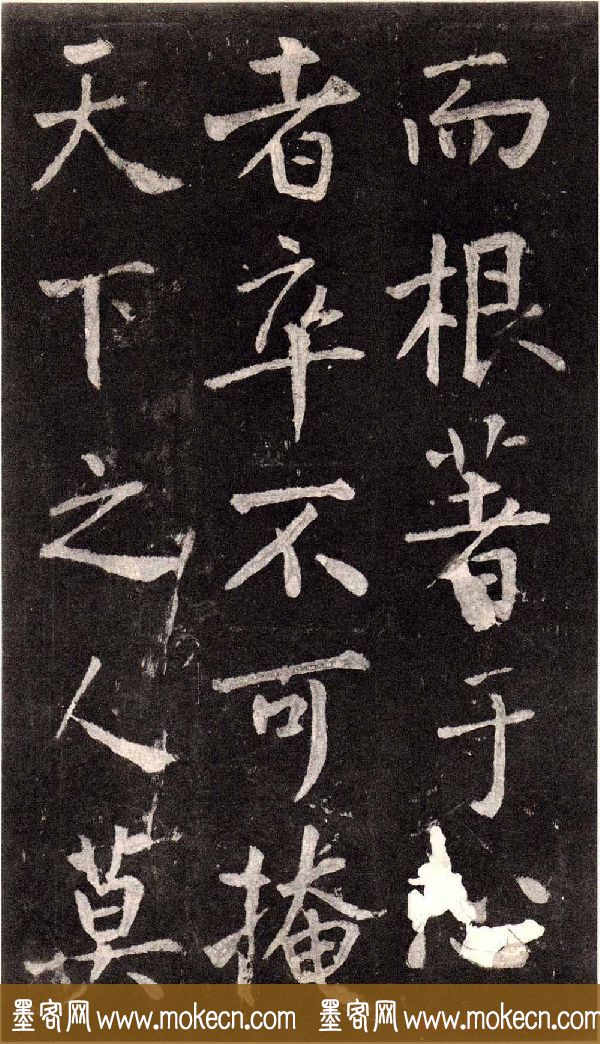 而根著于心
者卒不可掩
天下之人莫
墨客网 www.mokecn.com 墨客网 www.mokecn.com